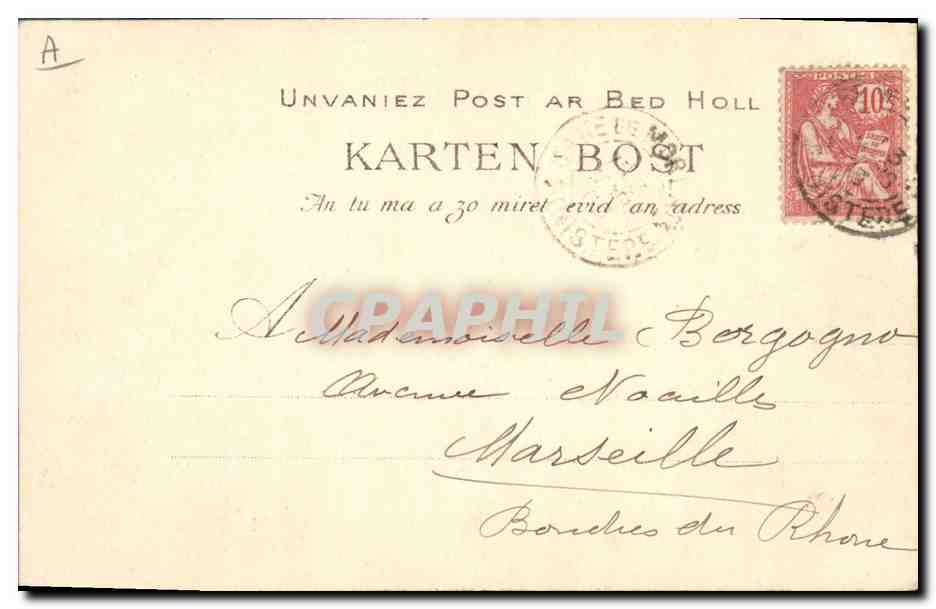 A
UNVANIEZ POST AR BED HOLL
KARTEN-BOST
An tu ma a zo miret evid an adress
POSTES
10
FINISTERE
CPAPHIL
A Mademoiselle Borgogno
Avenue Noailles
Marseille
Bouches du Rhone